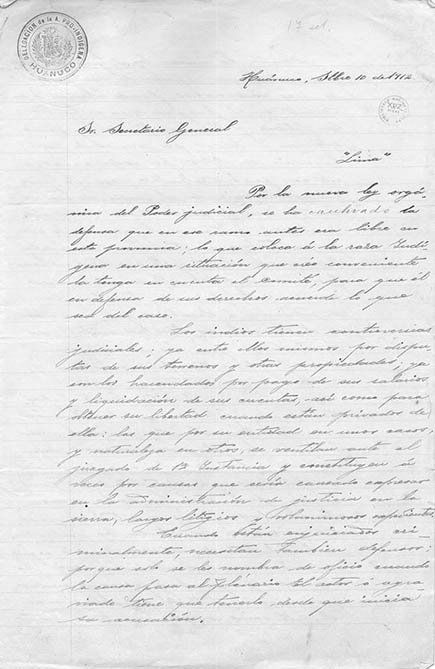 DELEGACIÓN de la A. PRO-INDÍGENA
HUANUCO
17 set.
Huánuco, Stbre 10 de 1912
Sr. Secretario General
"Lima"
Por la nueva ley orgá-
nica del Poder judicial, se ha cautivado la
defensa que en ese ramo antes era libre en
esta provincia; lo que coloca á la raza Indí-
gena en una situación que creo conveniente
la tenga en cuenta el Comité, para que él
en defensa de sus derechos acuerde lo que
sea del caso.
Los indios tienen controversias
judiciales; ya entre ellos mismos por dispu-
tas de sus terrenos y otras propiedades, ya
con los hacendados por pago de sus salarios
y liquidación de sus cuentas, asi como para
obtener su libertad cuando están privados de
ella: las que por su entidad en unos casos,
y naturaleza en otros, se ventilan ante el
juzgado de 1ª Instancia y constituyen á
veces por causas que sería cansado expresar
en la administración de justicia en la
sierra, largos litigios y voluminosos expedientes.
Cuando están enjuiciados cri-
minalmente, necesitan tambien defensor;
porque solo se les nombra de oficio cuando
la causa pasa al plenario. El actor ó agra-
viado tiene que tenerlo desde que inicia
su acusación.